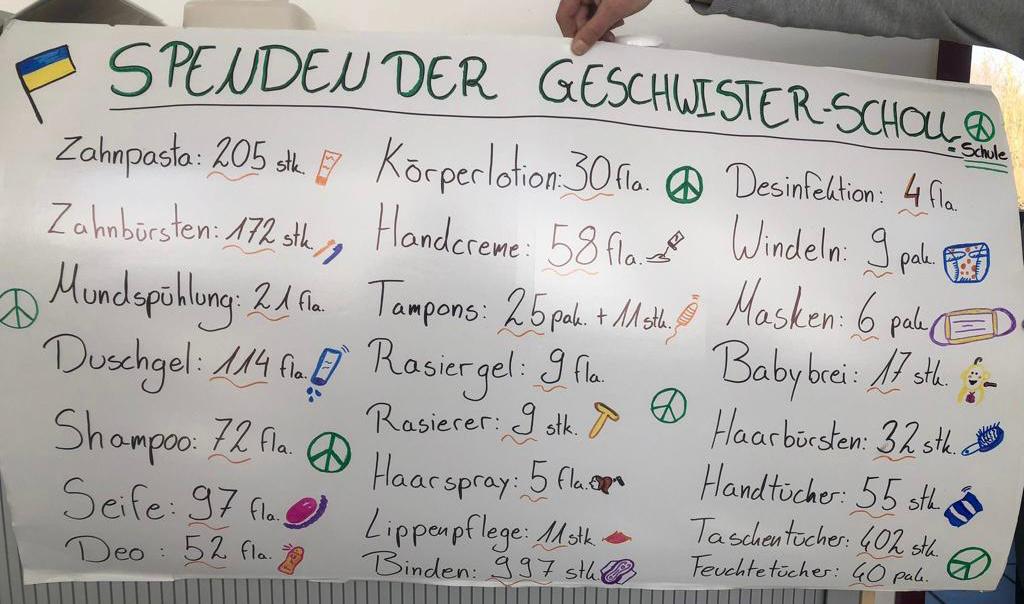 SPENDEN DER GESCHWISTER-SCHOLL-
Schule
Zahnpasta: 205 stk.
Zahnbürsten: 172 stk.
Mundspühlung: 21 fla.
Duschgel: 114 fla.
Shampoo: 72 fla.
Seife: 97 fla.
Deo: 52 fla.
Körperlotion: 30 fla.
Handcreme: 58 fla.
Tampons: 25 pak. + 11 stk.
Rasiergel: 9 fla.
Rasierer: 9 stk.
Haarspray: 5 fla.
Lippenpflege: 11 stk.
Binden: 997 stk.
Desinfektion: 4 fla.
Windeln: 9 pak.
Masken: 6 pak.
Babybrei: 17 stk.
Haarbürsten: 32 stk.
Handtücher: 55 stk.
Taschentücher: 402 stk.
Feuchtetücher: 40 pak.